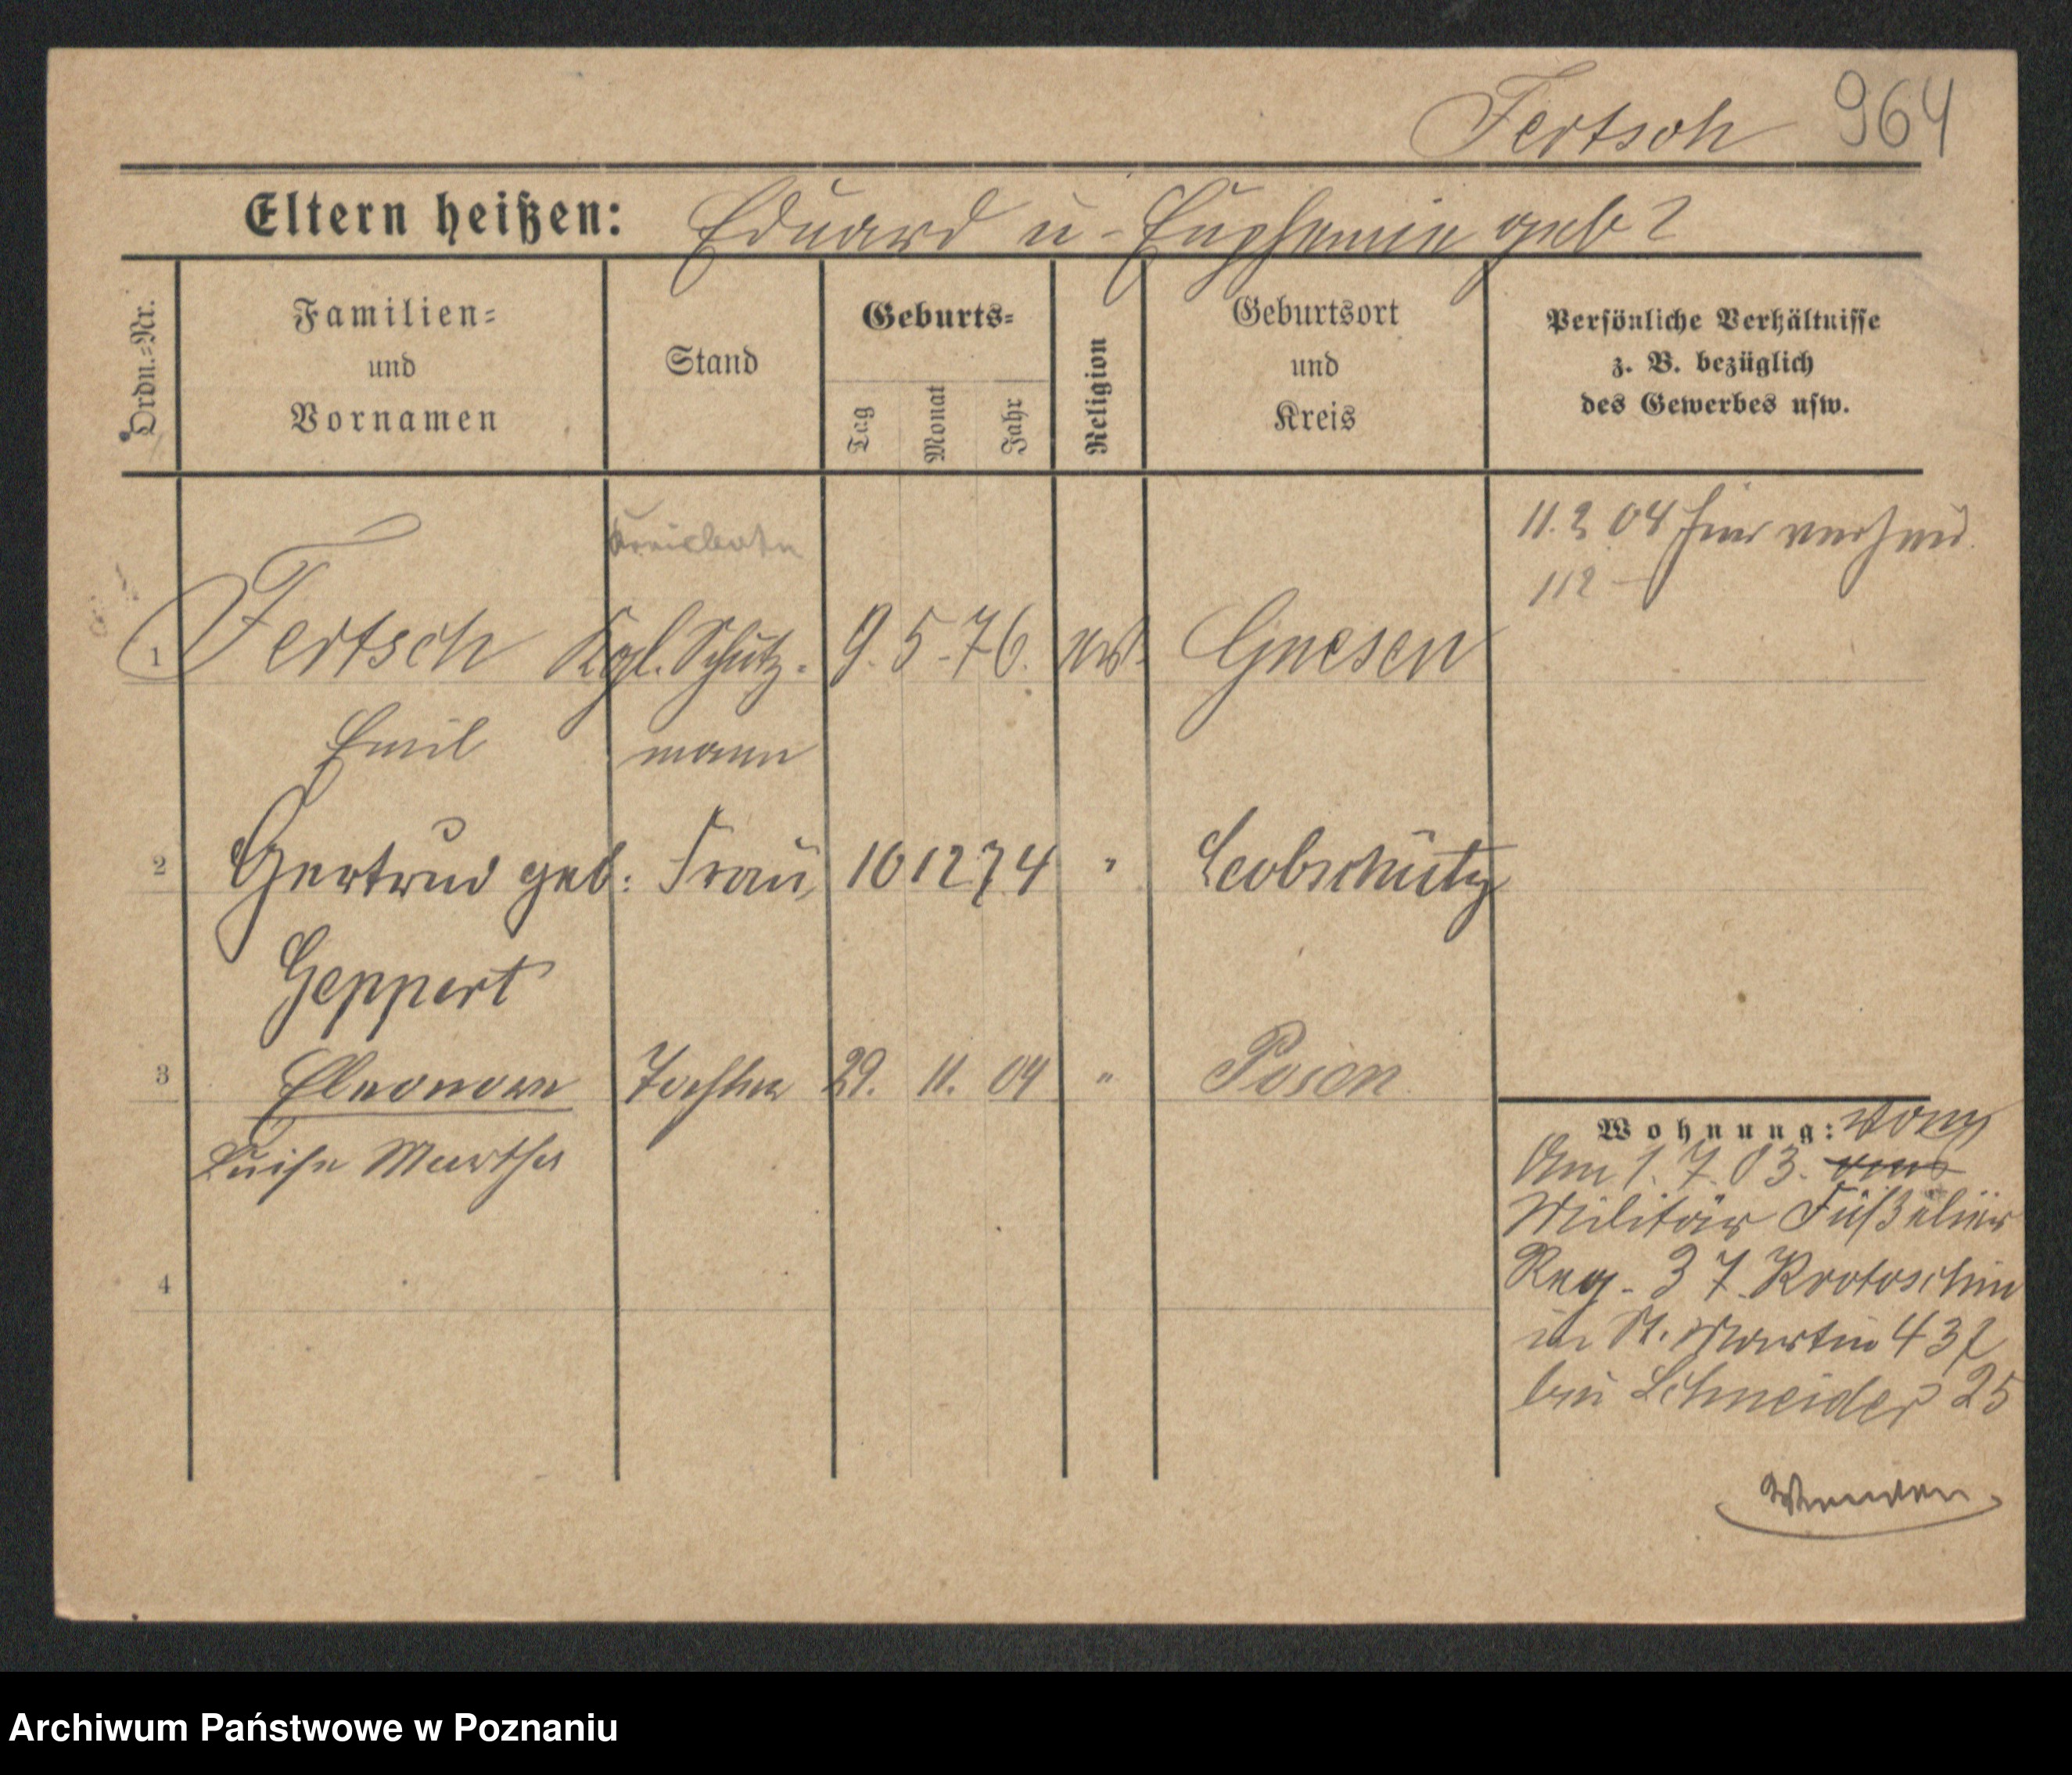 Fertsch 964
Eltern heißen: Eduard u. Euphemie geb?
Ordn.=Nr.
Familien=
und
Vornamen
Stand
Geburts=
Tag
Monat
Jahr
Religion
Geburtsort
und
Kreis
Persönliche Verhältnisse
z. B. bezüglich
des Gewerbes usw.
11.2 04 hier verheir.
112
Kreisbote
1 Fertsch Kgl. Schutz- 9. 5. 76. Gnesen
Emil mann
2 Gertrud geb: Frau 10 12 74 " Leobschütz
Geppert
3 Eleonore Tochter 29. 11. 04 " Posen
Luise Martha
4
Wohnung: vom
Am 1. 7. 03.
Militär Füßelier
Reg. 37 Krotoschin
in St. Martin 43
bei Schneider 25
Wenden